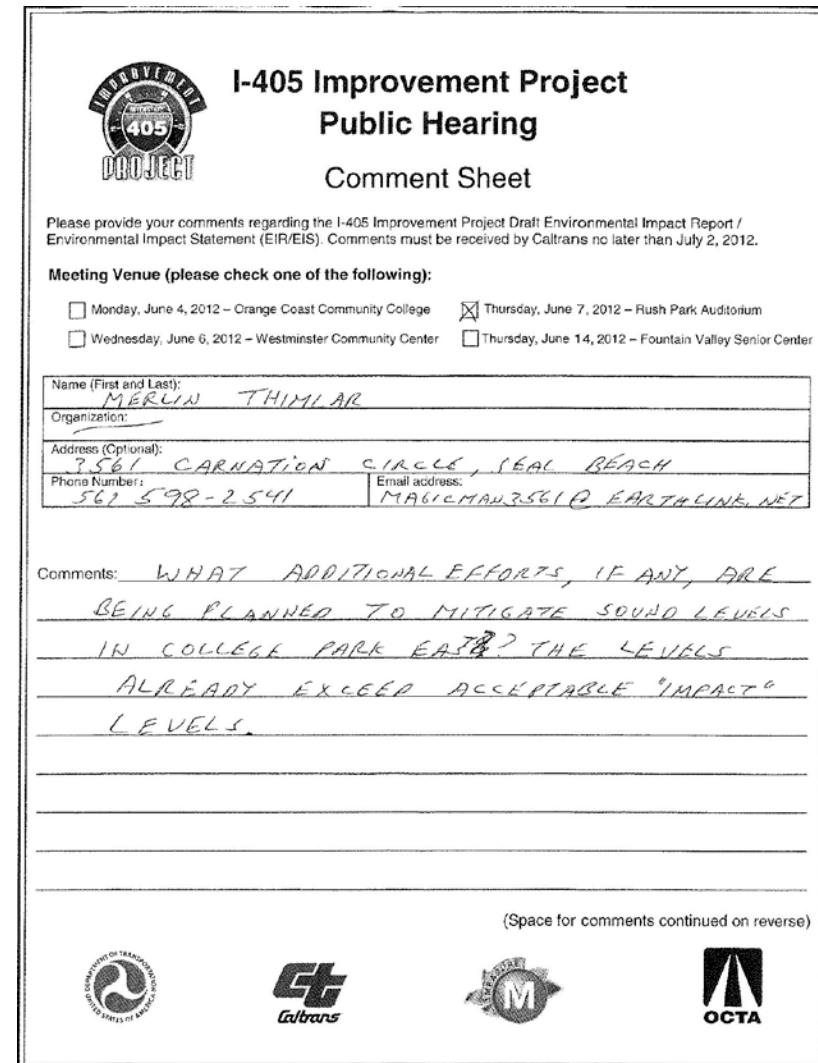 IMPROVEMENT
405
PROJECT
I-405 Improvement Project
Public Hearing
Comment Sheet
Please provide your comments regarding the I-405 Improvement Project Draft Environmental Impact Report /
Environmental Impact Statement (EIR/EIS). Comments must be received by Caltrans no later than July 2, 2012.
Meeting Venue (please check one of the following):
Monday, June 4, 2012 – Orange Coast Community College
Thursday, June 7, 2012 – Rush Park Auditorium
Wednesday, June 6, 2012 – Westminster Community Center
Thursday, June 14, 2012 – Fountain Valley Senior Center
Name (First and Last):
MERLIN THIMLAR
Organization:
Address (Optional):
3561 CARNATION CIRCLE, SEAL BEACH
Phone Number: Email address:
562 598-2541 MAGICMAN3561@EARTHLINK.NET
Comments: WHAT ADDITIONAL EFFORTS, IF ANY, ARE
BEING PLANNED TO MITIGATE SOUND LEVELS
IN COLLEGE PARK EAST? THE LEVELS
ALREADY EXCEED ACCEPTABLE "IMPACT"
LEVELS.
(Space for comments continued on reverse)
DEPARTMENT OF TRANSPORTATION
UNITED STATES OF AMERICA
Ct
Caltrans
MEASURE
M
OCTA